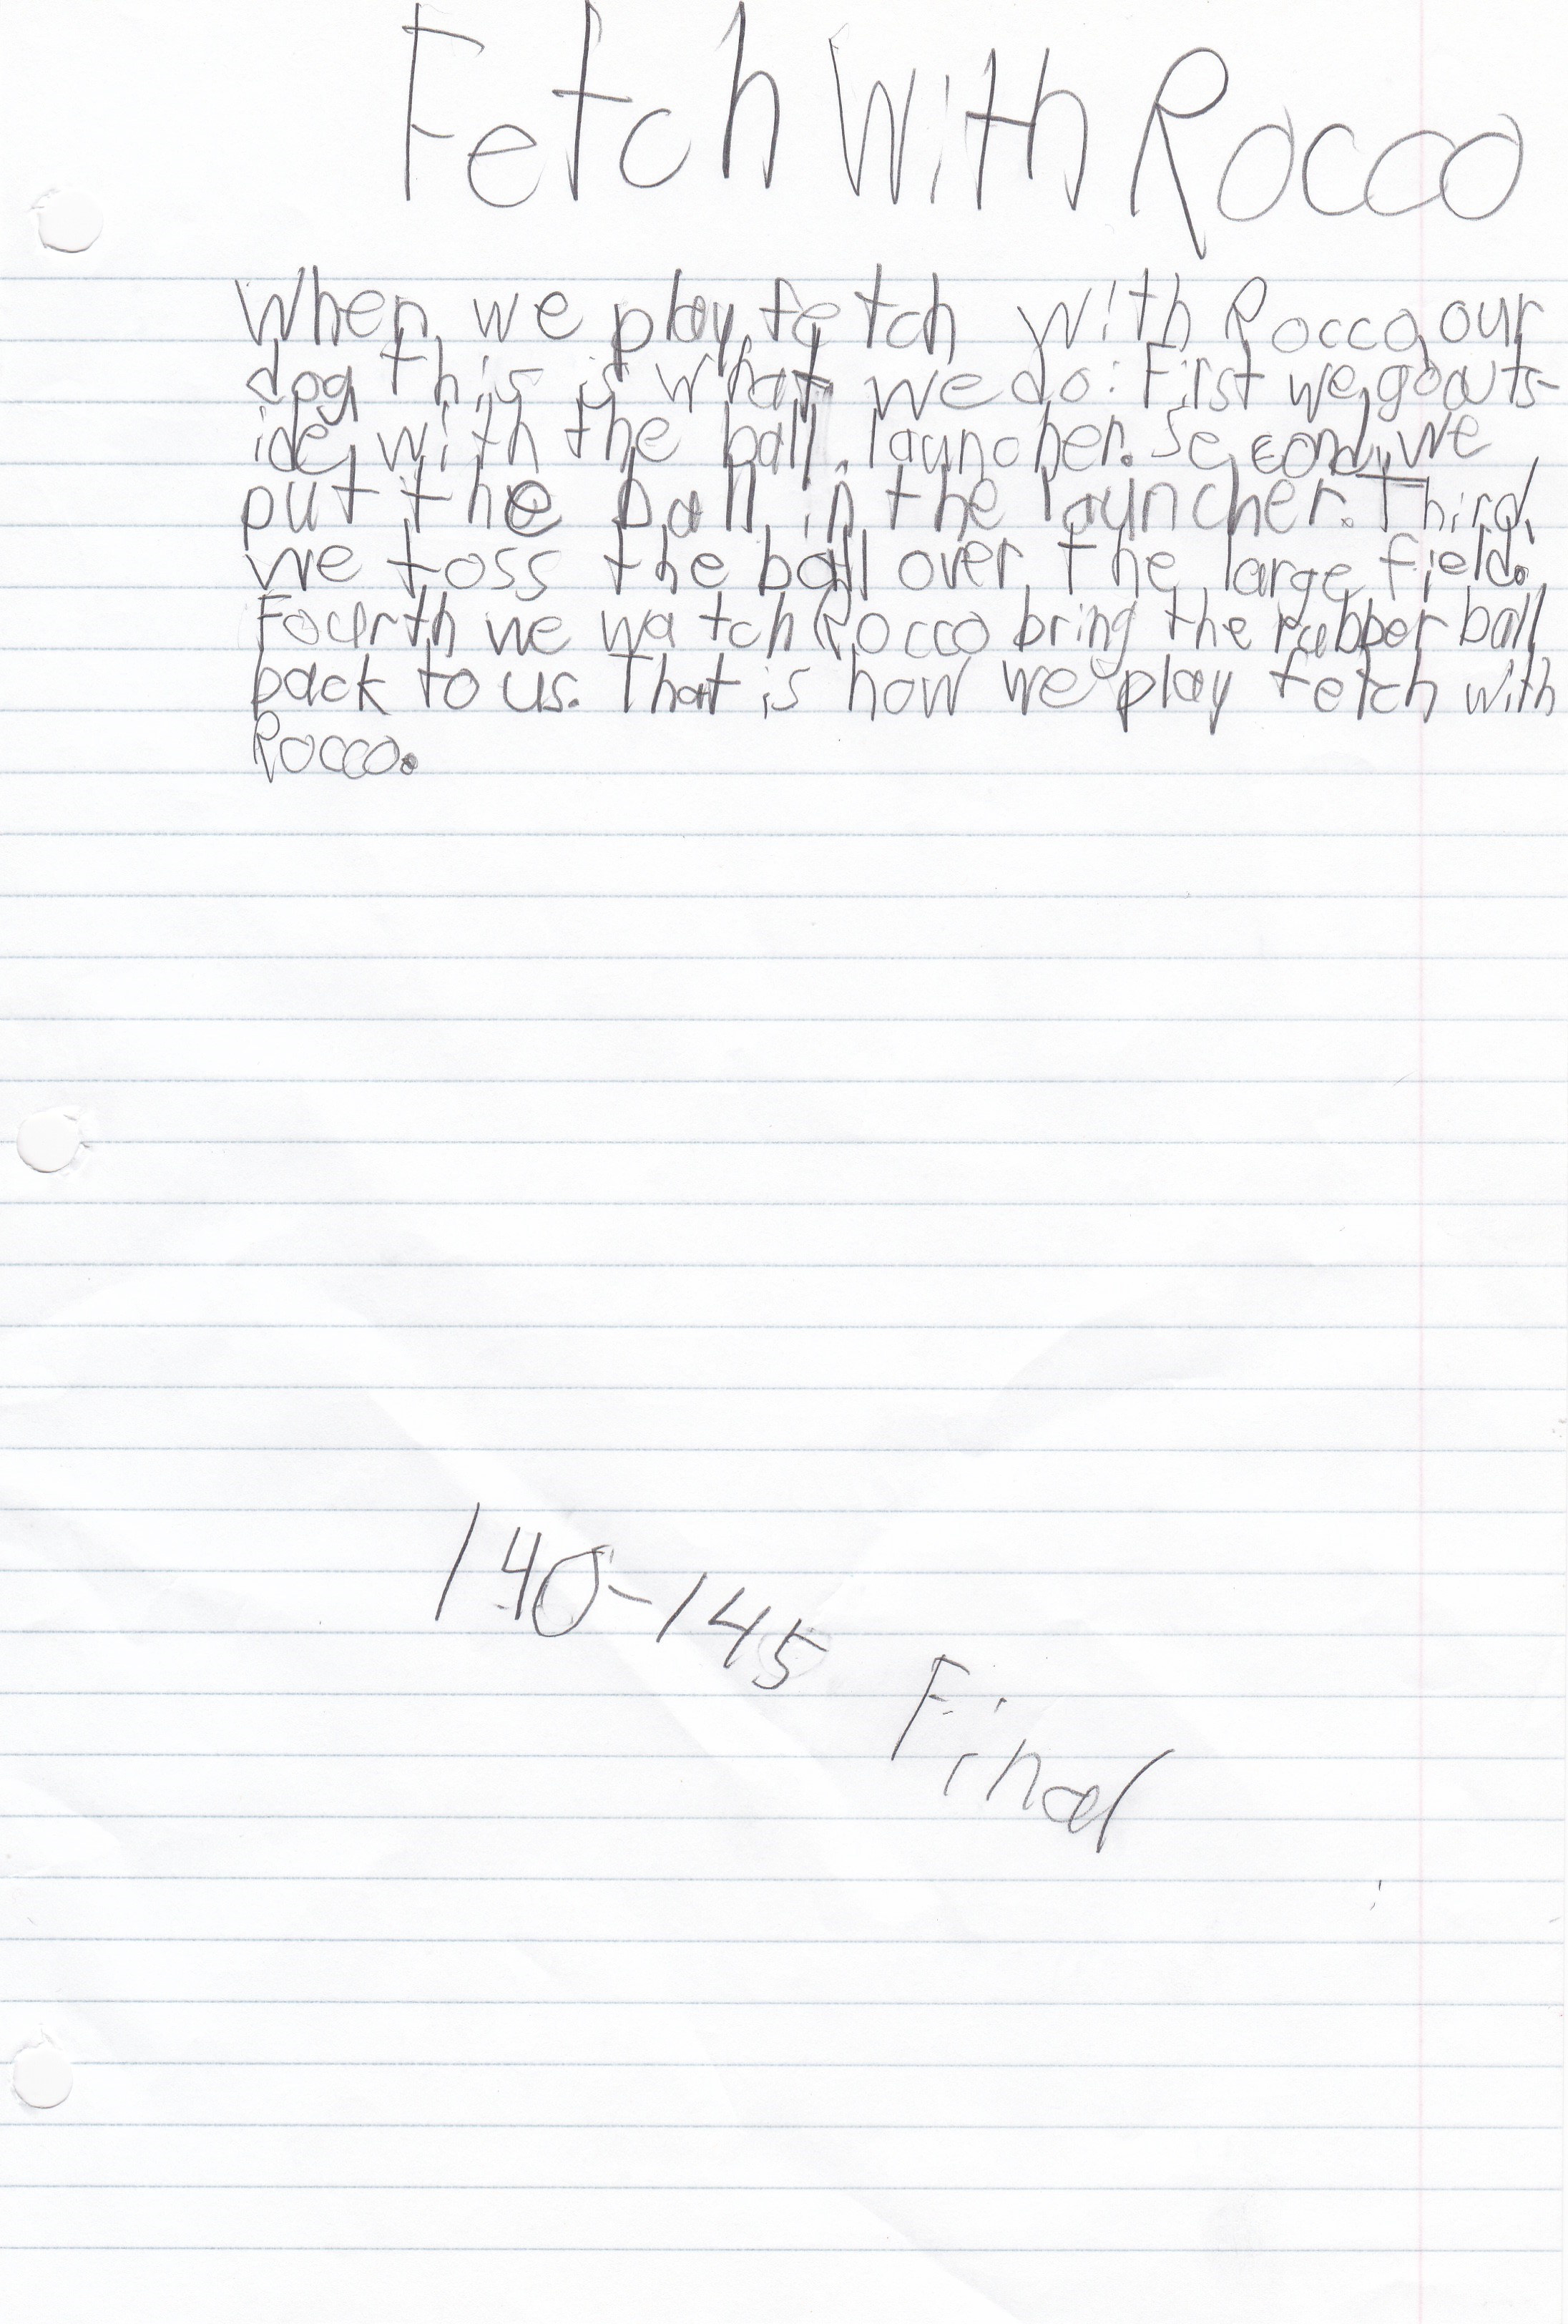 Fetch With Rocco
When we play fetch with Rocco, our
dog this is what we do: First we go outs-
ide with the ball launcher. Second, we
put the ball in the launcher. Third,
we toss the ball over the large field.
Fourth we watch Rocco bring the rubber ball
back to us. That is how we play fetch with
Rocco.
140-145
Final